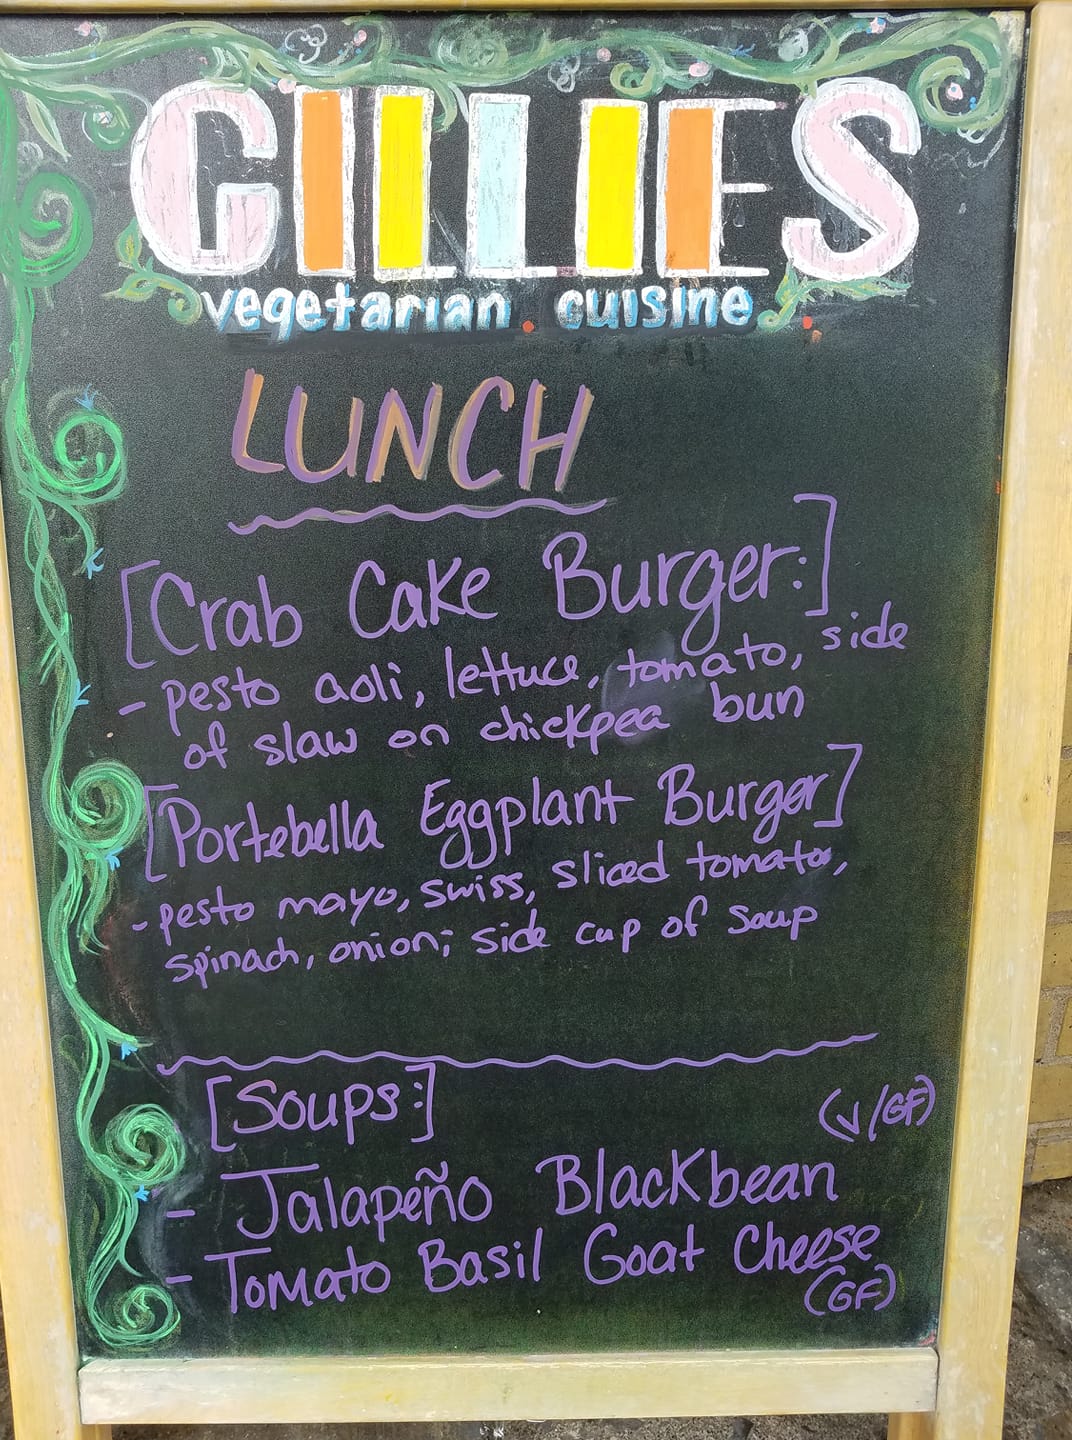 GILLIES
vegetarian. cuisine
LUNCH
[Crab Cake Burger:]
- pesto aoli, lettuce, tomato, side
of slaw on chickpea bun
[Portebella Eggplant Burger]
- pesto mayo, swiss, sliced tomato,
spinach, onion; side cup of soup
[Soups:]
(V/GF)
- Jalapeño Blackbean
- Tomato Basil Goat Cheese
(GF)